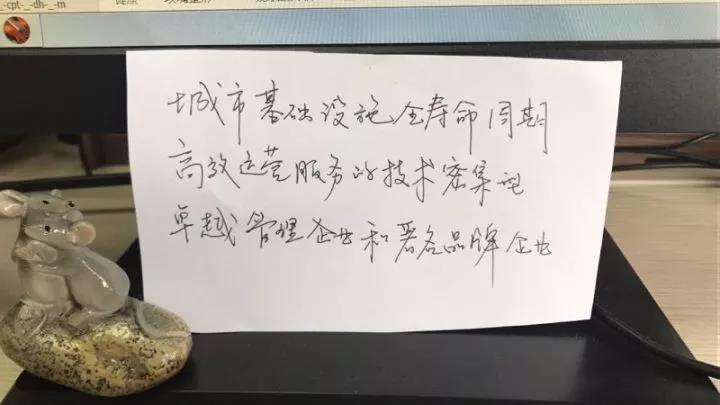 _-cpt-_-dh-_-m
城市基础设施全寿命周期
高效运营服务的技术密集型
卓越管理企业和著名品牌企业